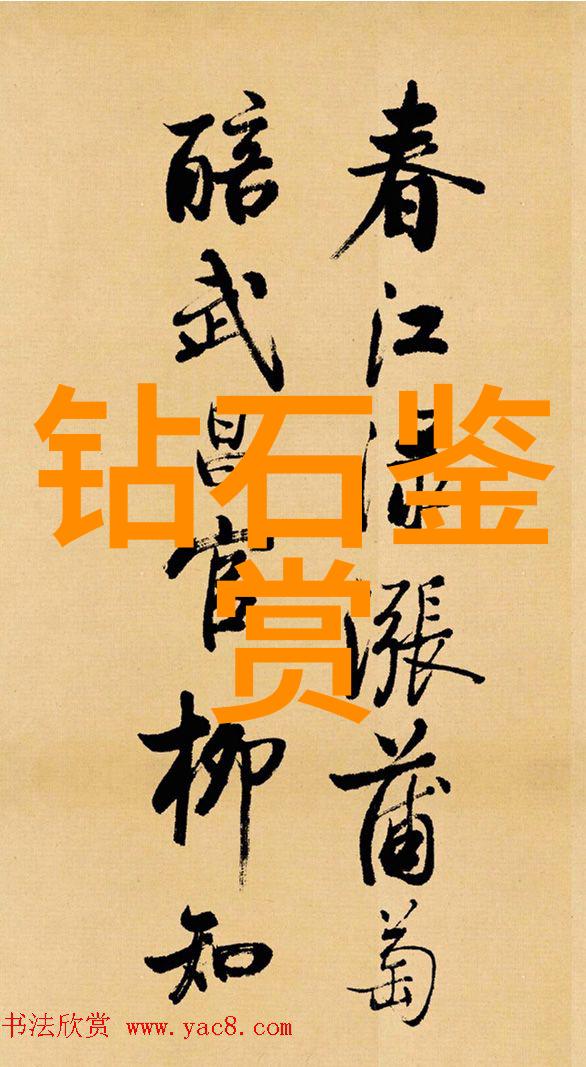 春江漲蒲萄
醅武昌官柳知
钻石鉴
赏
书法欣赏 www.yac8.com